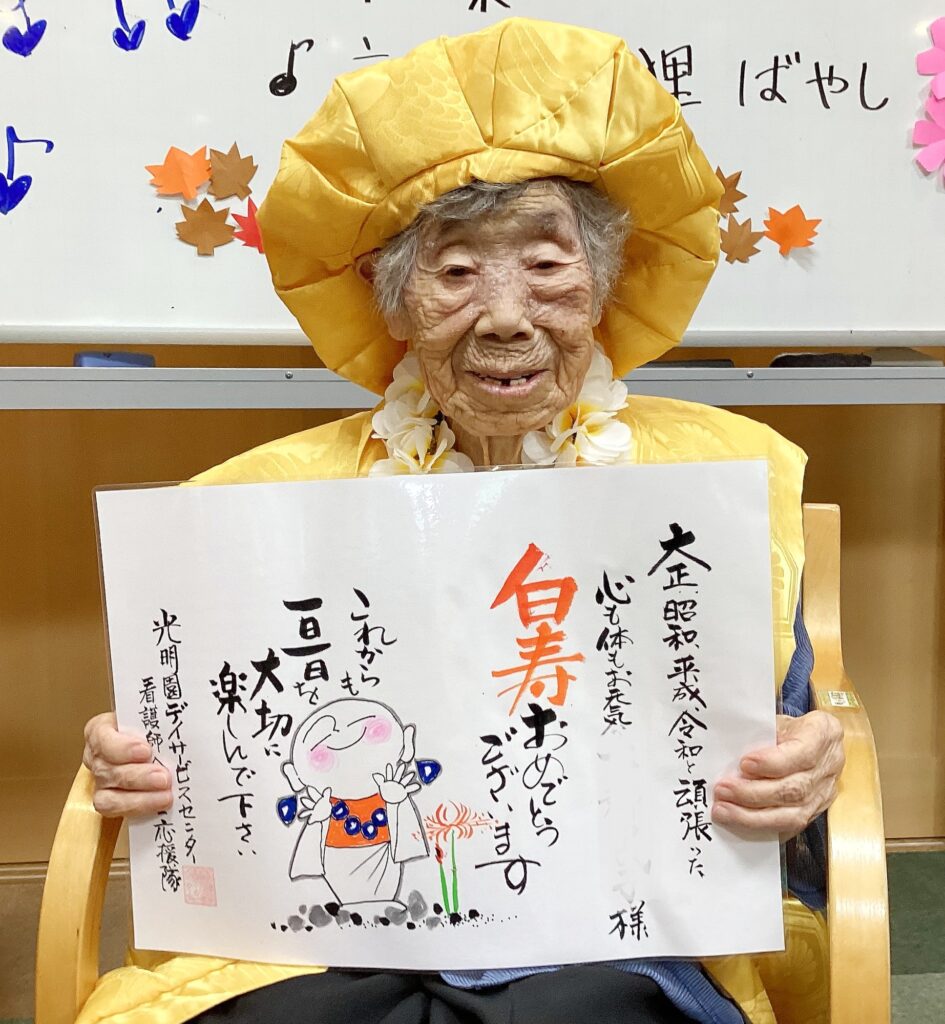 ♪
狸 ばやし
大正、昭和、平成、令和と頑張った
心も体もお元気
様
白寿おめでとう
ございます
これからも
一日一日を
大切に
楽しんで下さい
光明園デイサービスセンター
看護師
応援隊